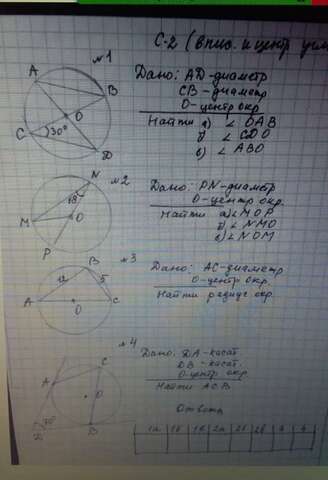 С-2 (впис. и центр угл
№1
A
B
O
C
30°
D
Дано: AD-диаметр
CB-диаметр
O-центр окр.
Найти а) ∠ OAB
б) ∠ CDO
в) ∠ ABO
№2
N
18°
O
M
P
Дано: PN-диаметр
O-центр окр.
Найти а) ∠ MOP
б) ∠ NMO
в) ∠ NOM
№3
B
12
5
A
O
C
Дано: AC-диаметр
O-центр окр.
Найти радиус окр.
№4
C
A
O
B
D
Дано: DA-касат.
DB-касат.
O-центр окр
Найти ACB
Ответы
1а 1б 1в 2а 2б 2в 3 4